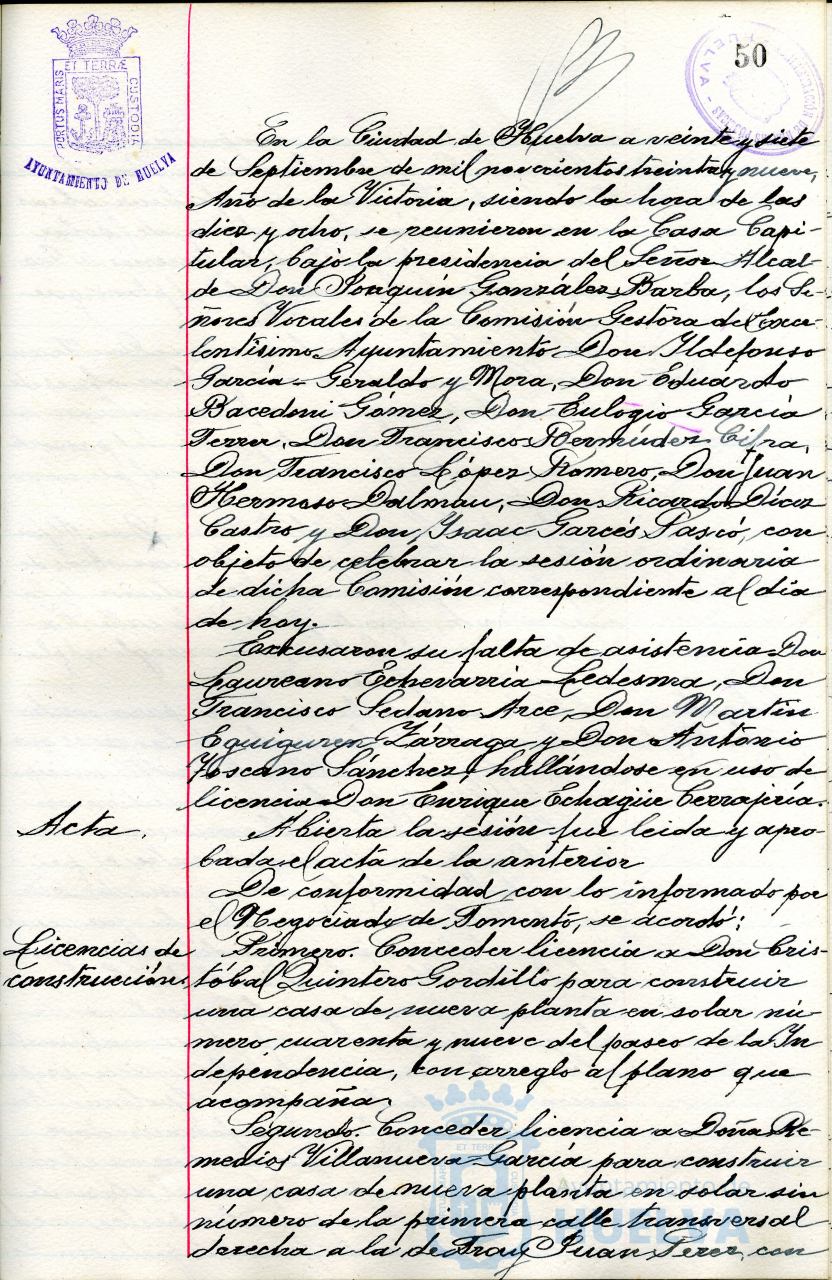 50
PORTUS MARIS ET TERRÆ CUSTODIA
AYUNTAMIENTO DE HUELVA
En la Ciudad de Huelva a veinte y siete
de Septiembre de mil novecientos treinta y nueve,
Año de la Victoria, siendo la hora de las
diez y ocho, se reunieron en la Casa Capi-
tular, bajo la presidencia del Señor Alcal-
de Don Joaquín González Barba, los Se-
ñores Vocales de la Comisión Gestora del Exce-
lentísimo Ayuntamiento, Don Ildefonso
García-Geraldo y Mora, Don Eduardo
Bacedoni Gómez, Don Eulogio García
Ferrer, Don Francisco Bermúdez Cifra,
Don Francisco López Romero, Don Juan
Hermoso Dalmau, Don Ricardo Díez
Castro y Don Isaac Garcés Pascó, con
objeto de celebrar la sesión ordinaria
de dicha Comisión correspondiente al día
de hoy.
Excusaron su falta de asistencia Don
Laureano Echevarria Ledesma, Don
Francisco Sedano Arce, Don Martín
Eguiguren Zárraga y Don Antonio
Toscano Sánchez, hallándose en uso de
licencia Don Enrique Echagüe Cerrajería.
Acta.
Abierta la sesión fue leida y apro-
bada el acta de la anterior
De conformidad con lo informado por
el Negociado de Fomento, se acordó:
Licencias de
construcciones
Primero. Conceder licencia a Don Cris-
tóbal Quintero Gordillo para construir
una casa de nueva planta en solar nú-
mero cuarenta y nueve del paseo de la In
dependencia, con arreglo al plano que
acompaña.
Segundo. Conceder licencia a Doña Re-
medios Villanueva García para construir
una casa de nueva planta en solar sin
número de la primera calle transversal
derecha a la de Fray Juan Perez, con
Ayuntamiento de
HUELVA